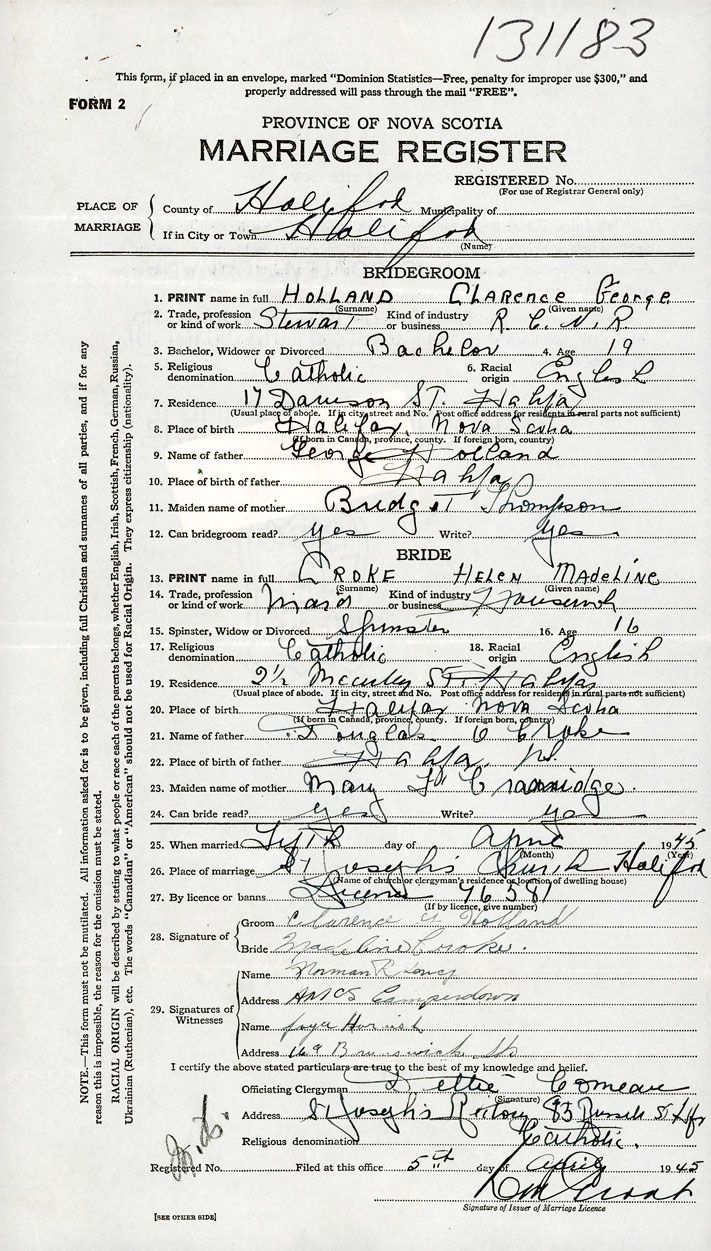 131183
This form, if placed in an envelope, marked "Dominion Statistics—Free, penalty for improper use $300," and
properly addressed will pass through the mail "FREE".
FORM 2
PROVINCE OF NOVA SCOTIA
MARRIAGE REGISTER
REGISTERED No.
(For use of Registrar General only)
PLACE OF MARRIAGE
County of Halifax Municipality of
If in City or Town Halifax
(Name)
BRIDEGROOM
1. PRINT name in full HOLLAND CLARENCE George
(Surname) (Given name)
2. Trade, profession or kind of work Stewart Kind of industry or business R. C. N. R
3. Bachelor, Widower or Divorced Bachelor 4. Age 19
5. Religious denomination Catholic 6. Racial origin English
7. Residence 17 ST. Halfx
(Usual place of abode. If in city, street and No. Post office address for residents in rural parts not sufficient)
8. Place of birth Halifax, Nova Scotia
(If born in Canada, province, county. If foreign born, country)
9. Name of father George Holland
10. Place of birth of father Halfx
11. Maiden name of mother Bridget Thompson
12. Can bridegroom read? yes Write? yes
BRIDE
13. PRINT name in full CROKE HELEN MADELINE
(Surname) (Given name)
14. Trade, profession or kind of work Maid Kind of industry or business Housework
15. Spinster, Widow or Divorced Spinster 16. Age 16
17. Religious denomination Catholic 18. Racial origin English
19. Residence 2½ McCully ST. Halfx
(Usual place of abode. If in city, street and No. Post office address for residents in rural parts not sufficient)
20. Place of birth Halifax Nova Scotia
(If born in Canada, province, county. If foreign born, country)
21. Name of father Douglas Croke
22. Place of birth of father Halfx
23. Maiden name of mother Mary
24. Can bride read? yes Write? yes
25. When married day of April 1945
(Month) (Year)
26. Place of marriage St Joseph's Church Halifax
(Name of church or clergyman's residence or location of dwelling house)
27. By licence or banns Licence 46581
(If by licence, give number)
28. Signature of
Groom Clarence G Holland
Bride Madeline Croke.
29. Signatures of Witnesses
Name Norman R
Address HMCS Camperdown
Name Joyce
Address Brunswick St
I certify the above stated particulars are true to the best of my knowledge and belief.
Officiating Clergyman Comeau
(Signature)
Address St Joseph's Rectory 83 Russell St Hfx
Religious denomination Catholic.
Registered No. Filed at this office 5th day of April 1945
Signature of Issuer of Marriage Licence
[SEE OTHER SIDE]
NOTE.—This form must not be mutilated. All information asked for is to be given, including full Christian and surnames of all parties, and if for any
reason this is impossible, the reason for the omission must be stated.
RACIAL ORIGIN will be described by stating to what people or race each of the parents belongs, whether English, Irish, Scottish, French, German, Russian,
Ukrainian (Ruthenian), etc. The words "Canadian" or "American" should not be used for Racial Origin. They express citizenship (nationality).